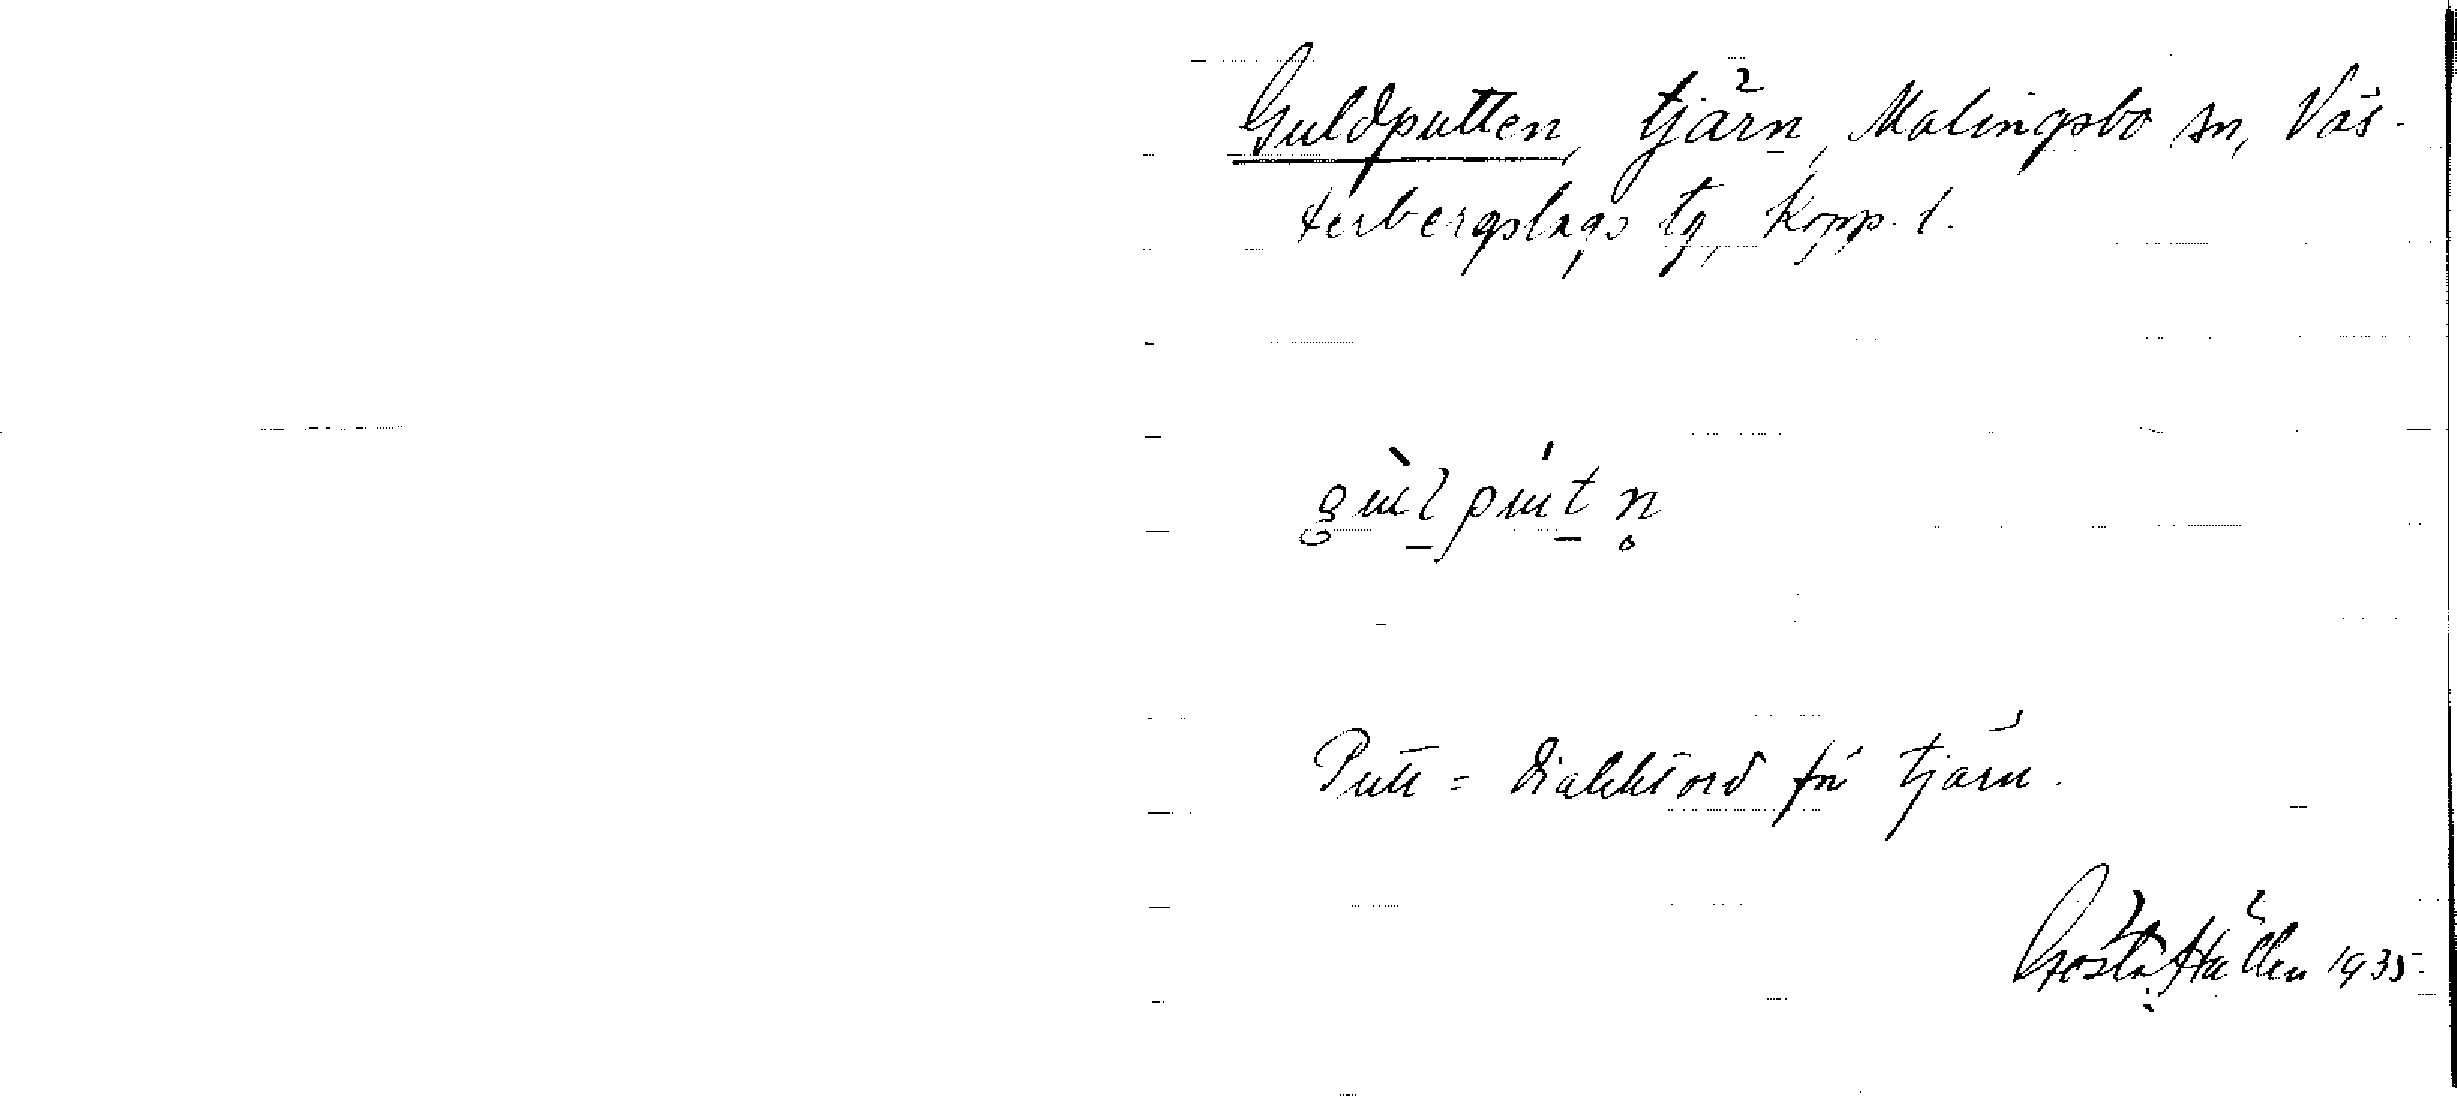 Guldputten, tjärn, Malingsbo sn, Väs-
terbergslags tg, Kopp. l.
Putt = dialektord för tjärn.
Gösta Hällen 1935.